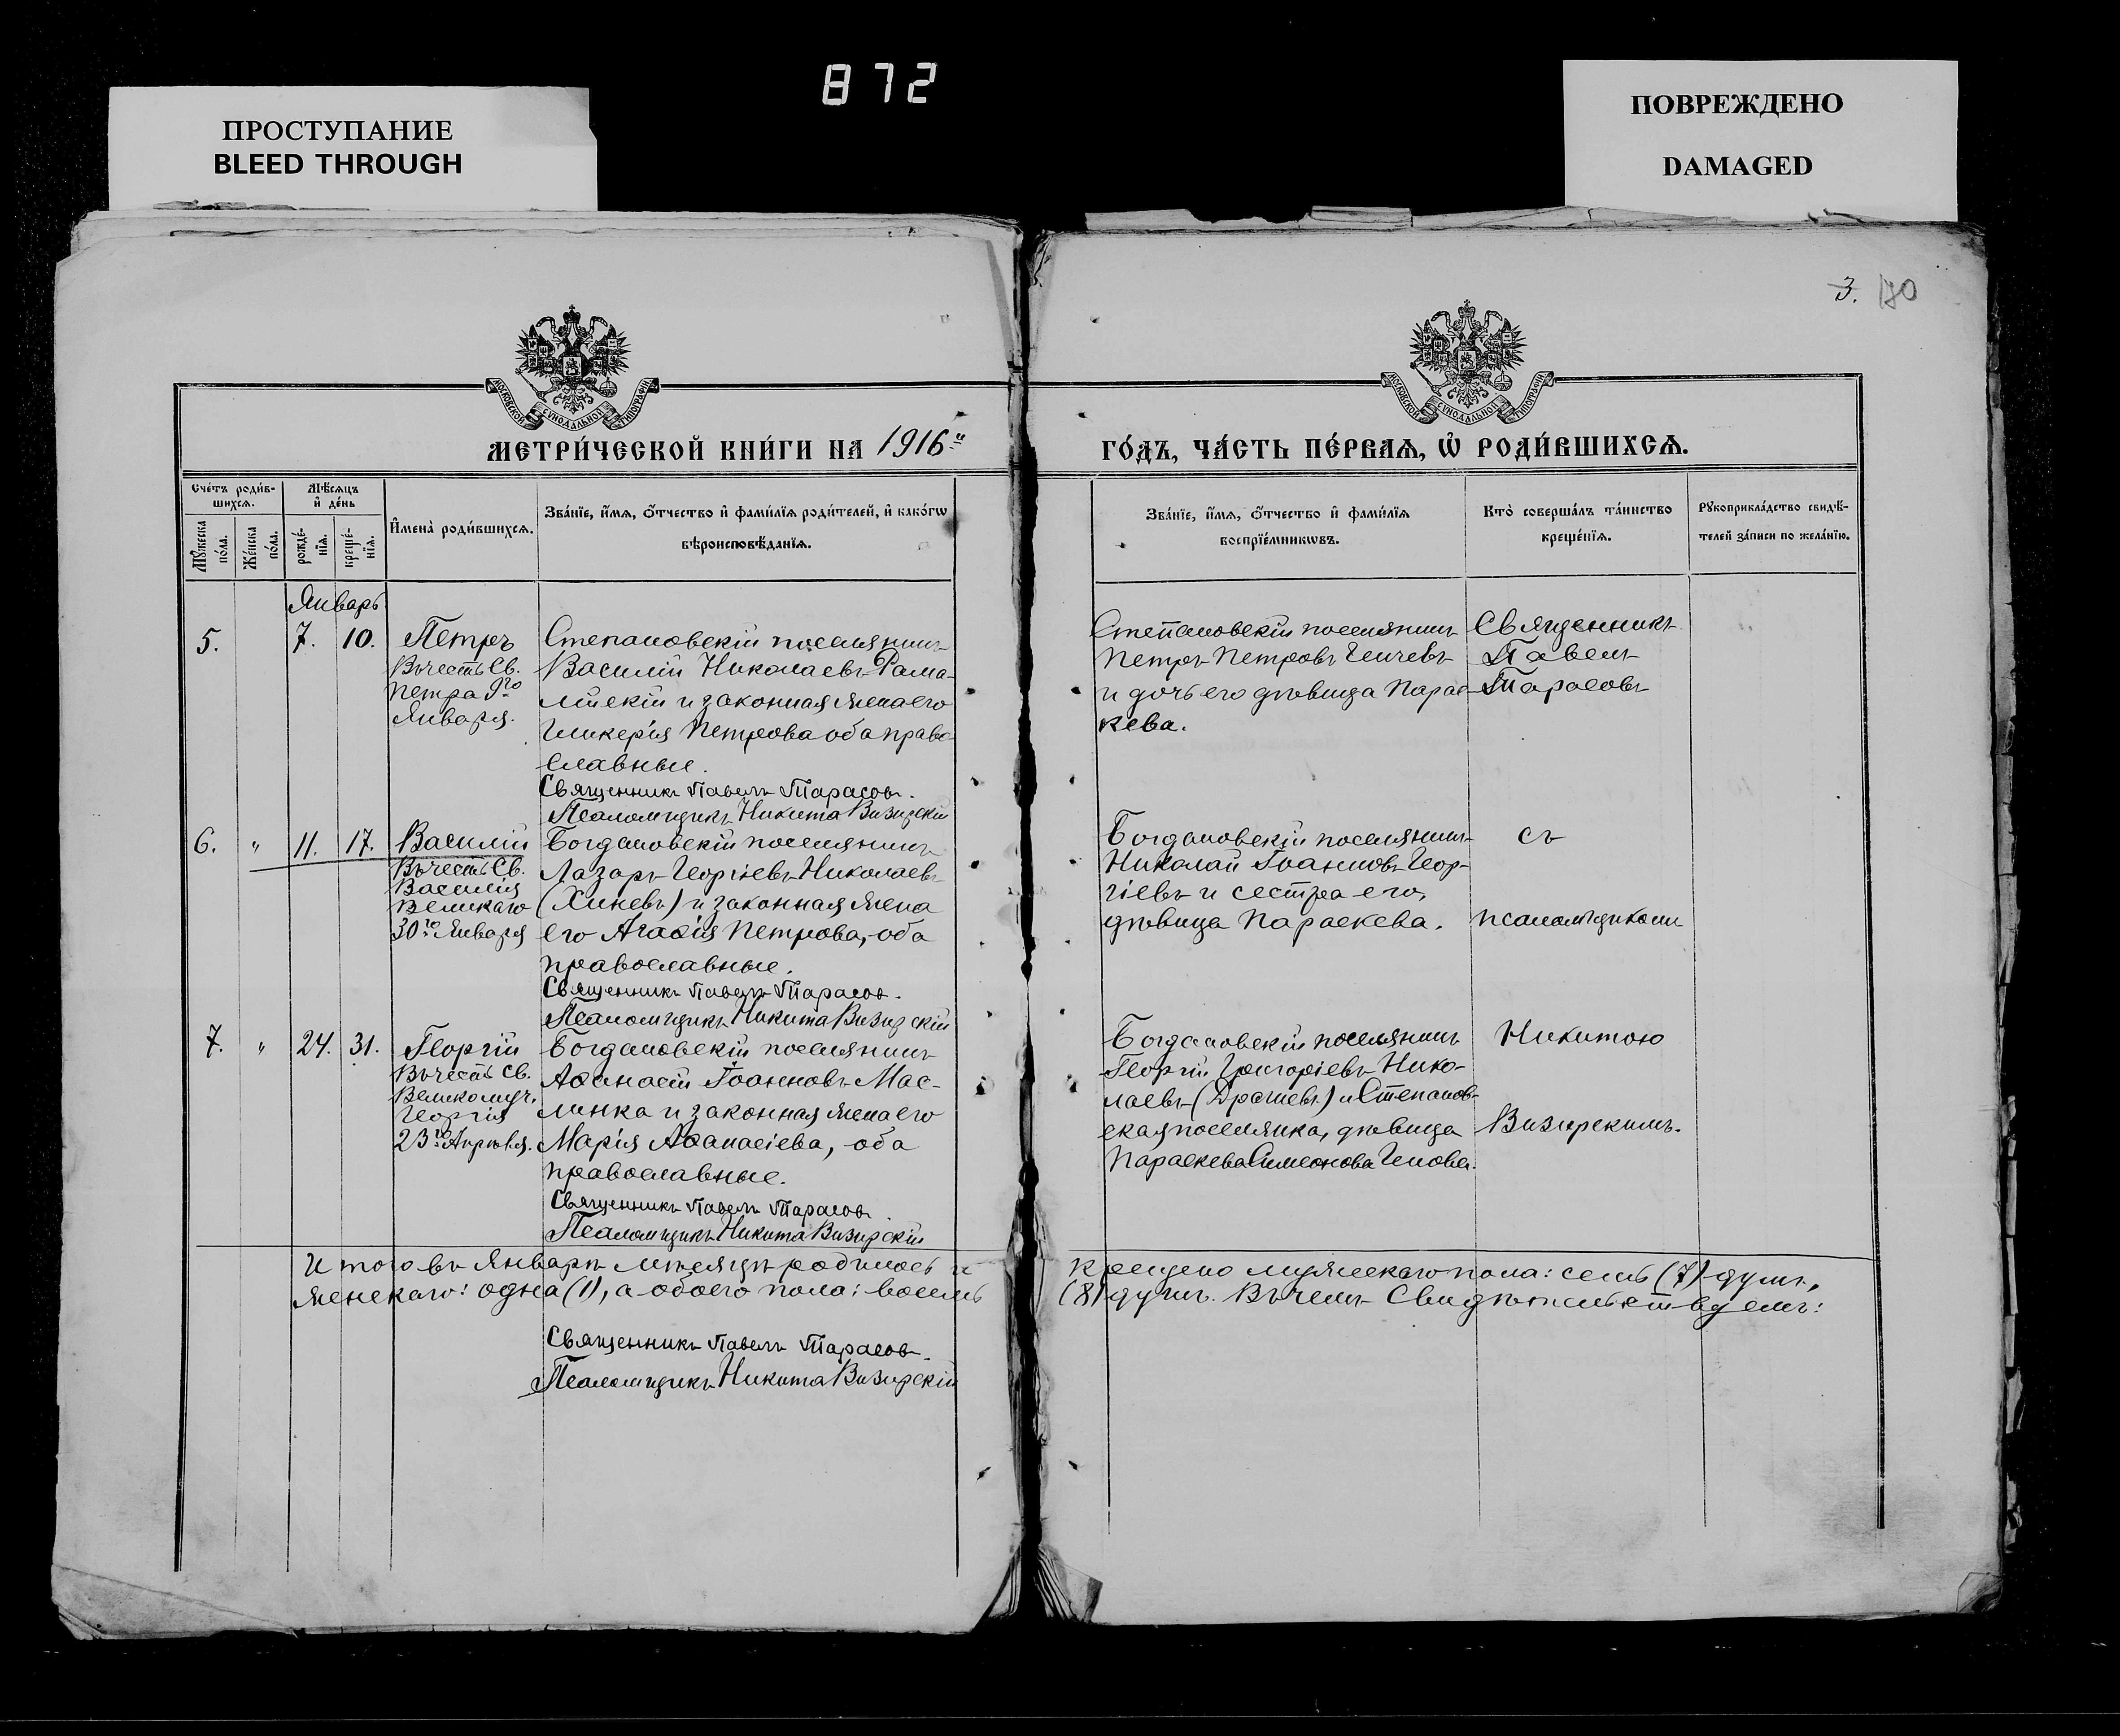 872
ПРОСТУПАНИЕ
BLEED THROUGH
ПОВРЕЖДЕНО
DAMAGED
3. 170
МОСКОВСКОЙ СУНОДАЛЬНОЙ ТИПОГРАФІИ
МОСКОВСКОЙ СУНОДАЛЬНОЙ ТИПОГРАФІИ
МЕТРИ́ЧЕСКОЙ КНИ́ГИ НА 1916й
ГО́ДЪ, ЧА́СТЬ ПЕ́РВАѦ, Ѡ҆ РОДИ́ВШИХСѦ.
Сче́тъ роди́в-
шихсѧ.
Мꙋ́жеска по́ла.
Же́нска по́ла.
Мѣ́сѧцъ
и҆ де́нь
рожде́-
нїѧ.
креще́-
нїѧ.
И҆мена̀ роди́вшихсѧ.
Зва́нїе, и҆́мѧ, ѻ҆́тчество и҆ фами́лїѧ роди́телей, и҆ како́гѡ
вѣроисповѣ́данїѧ.
Зва́нїе, и҆́мѧ, ѻ҆́тчество и҆ фами́лїѧ
воспрїе́мникѡвъ.
Кто̀ соверша́лъ та́инство
креще́нїѧ.
Рꙋкоприкла́дство свидѣ́-
телей за́писи по жела́нїю.
Январь
5. 7. 10. Петръ
Въ честь Св.
Петра 9го
Января.
Степановскій поселянинъ
Василій Николаевъ Рама-
лійскій и законная жена его
Гликерія Петрова оба право-
славные.
Священникъ Павелъ Тарасов.
Псаломщикъ Никита Визирскій
Степановскій поселянинъ
Петръ Петровъ Генчевъ
и дочь его дѣвица Парас-
кева.
Священникъ
Павелъ
Тарасовъ
6. " 11. 17. Василій
Въ честь Св.
Василія
Великаго
30го Января
Богдановскій поселянинъ
Лазарь Георгіевъ Николаевъ
(Хиневъ) и законная жена
его Агаѳія Петрова, оба
православные.
Священникъ Павелъ Тарасов.
Псаломщикъ Никита Визирскій
Богдановскій поселянинъ
Николай Іоанновъ Геор-
гіевъ и сестра его,
дѣвица Параскева.
съ
псаломщикомъ
7. " 24. 31. Георгій
Въ честь Св.
Великомуч.
Георгія
23го Апрѣля.
Богдановскій поселянинъ
Аѳанасій Іоанновъ Мас-
линка и законная жена его
Марія Аѳанасіева, оба
православные.
Священникъ Павелъ Тарасов
Псаломщикъ Никита Визирскій
Богдановскій поселянинъ
Георгій Григоріевъ Нико-
лаевъ (Драгневъ) и Степанов-
ская поселянка, дѣвица
Параскева Симеонова Генова.
Никитою
Визирскимъ.
Итого въ Январѣ мѣсяцѣ родилось и крещено мужескаго пола: семь (7) душъ,
женскаго: одна (1), а обоего пола: восемь (8) душъ. Въ чемъ Свидѣтельствуемъ:
Священникъ Павелъ Тарасов.
Псаломщикъ Никита Визирскій